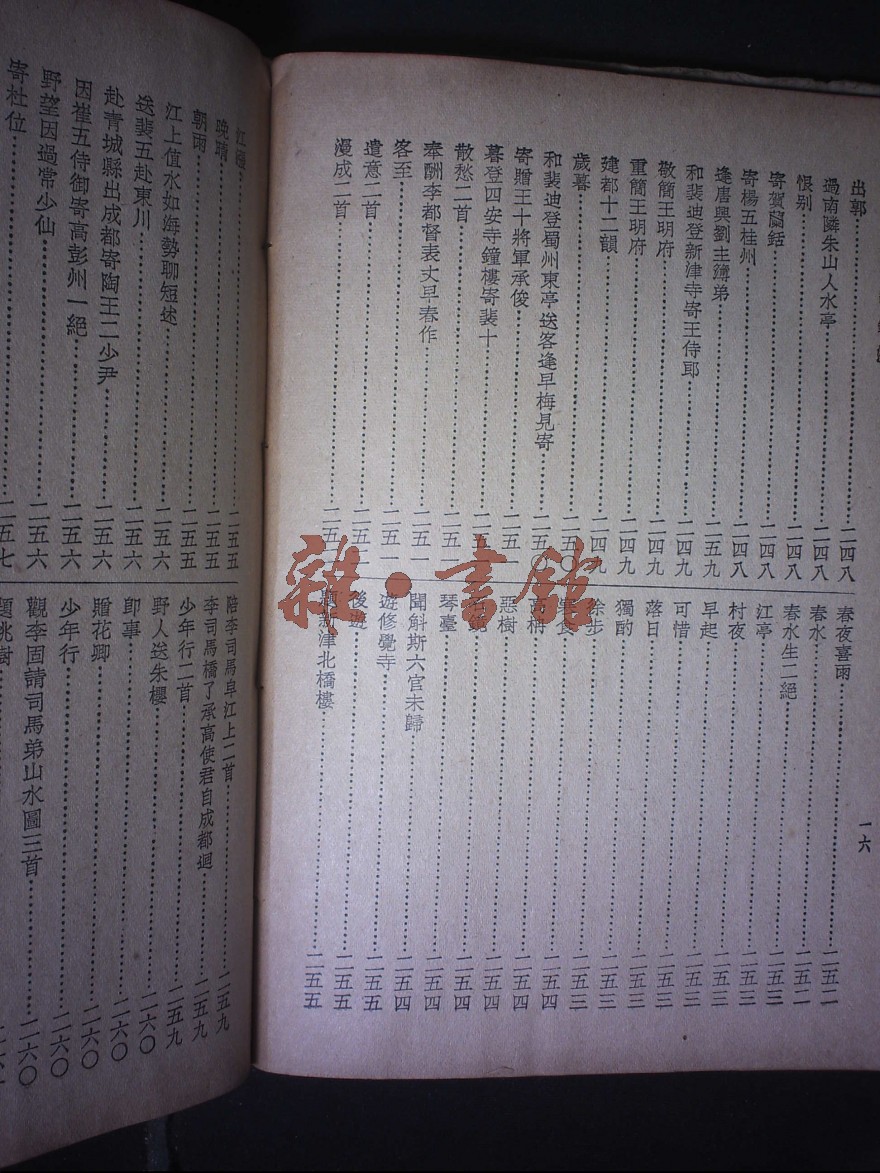 出郭……二四八
過南隣朱山人水亭……二四八
恨別……二四八
寄賀蘭銛……二四八
寄楊五桂州……二四八
逢唐興劉主簿弟……二五九
和裴迪登新津寺寄王侍郎……二四九
敬簡王明府……二四九
重簡王明府……二四九
建都十二韻……二四九
歲暮……二五〇
和裴迪登蜀州東亭送客逢早梅見寄……二五〇
寄贈王十將軍承俊……二五
暮登四安寺鐘樓寄裴十……二五
散愁二首……二五
奉酬李都督表丈早春作……二五一
客至……二五一
遣意二首……二五
漫成二首……二五
一六
春夜喜雨……二五二
春水……二五二
春水生二絕……二五三
江亭……二五三
村夜……二五三
早起……二五三
可惜……二五三
落日……二五三
獨酌……二五三
徐步……二五三
寒食……二五三
高柟……二五四
惡樹……二五四
石鏡……二五四
琴臺……二五四
聞斛斯六官未歸……二五四
遊修覺寺……二五五
後遊……二五五
題新津北橋樓……二五五
江……二五五
晚晴……二五五
朝雨……二五五
江上值水如海勢聊短述……二五五
送裴五赴東川……二五六
赴青城縣出成都寄陶王二少尹……二五六
因崔五侍御寄高彭州一絕……二五六
野望因過常少仙……二五六
寄杜位……二五七
陪李司馬皁江上二首……二五九
李司馬橋了承高使君自成都迴……二五九
少年行二首……二五九
野人送朱櫻……二六〇
即事……二六〇
贈花卿……二六〇
少年行……二六〇
觀李固請司馬弟山水圖三首……二六〇
題桃樹
雜·書館